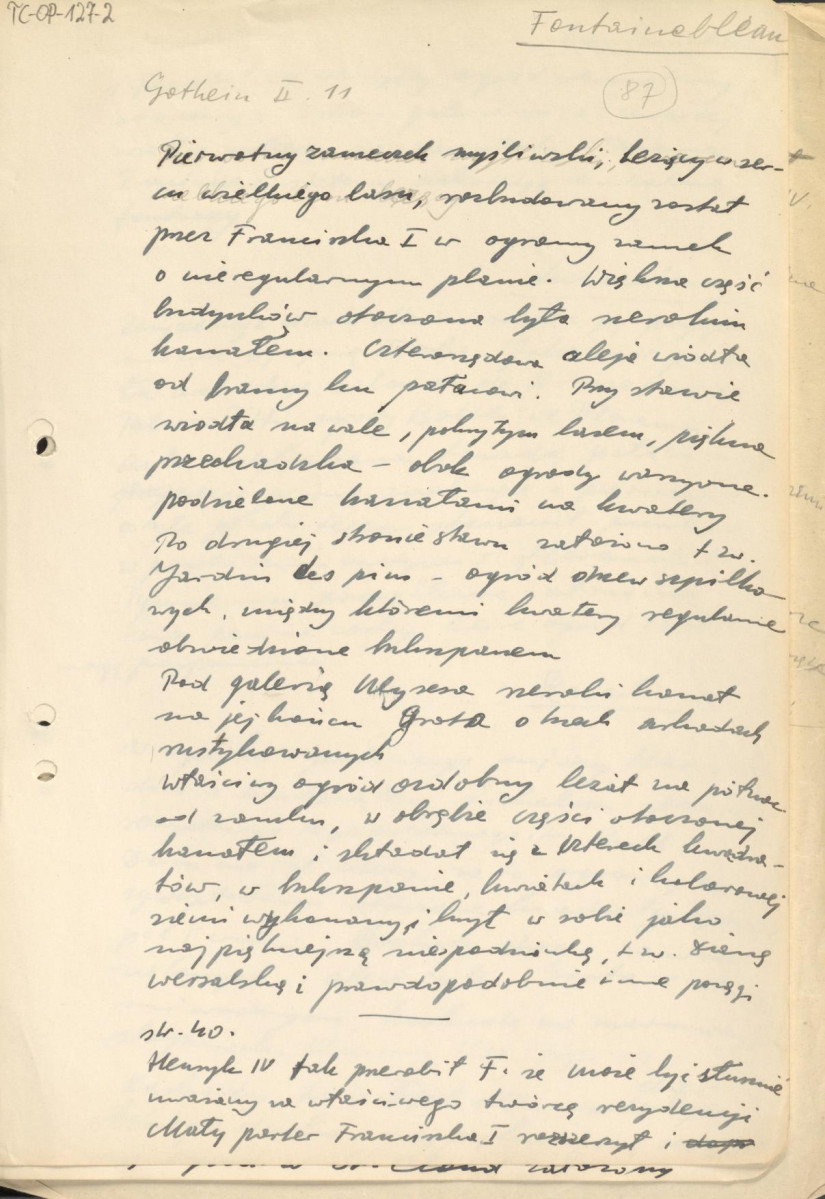 TC-OP-127-2
Fontainebleau
Gothein II. 11
87
Pierwotny zameczek myśliwski, leżący w ser-
cu wielkiego lasu, rozbudowany został
przez Franciszka I w ogromny zamek
o nieregularnym planie. Większa część
budynków otoczona była szerokim
kanałem. Czterorzędowa aleja wiodła
od bramy ku pałacowi. Przy stawie
wiodła na wale, pokrytym lasem, piękna
przechadzka – obok ogrody warzywne.
podzielone kanałami na kwatery
Po drugiej stronie stawu założono t zw.
Jardin des pins – ogród drzew szpilko-
wych, między któremi kwatery regularnie
obwiedzione bukszpanem
Pod galerią Ulyssesa szeroki kanał
na jej końcu Grota o trzech arkadach
rustykowanych
Właściwy ogród ozdobny leżał na północ
od zamku, w obrębie części otoczonej
kanałem i składał się z czterech kwadra-
tów, w bukszpanie, kwiatach i kolorowej
ziemi wykonany, i krył w sobie jako
najpiękniejszą niespodziankę, t.zw. Dianę
wersalską i prawdopodobnie inne posągi
str. 40.
Henryk IV tak przerobił F. że może być słusznie
uważany za właściwego twórcę rezydencji
Mały parter Franciszka I rozszerzył i
założony